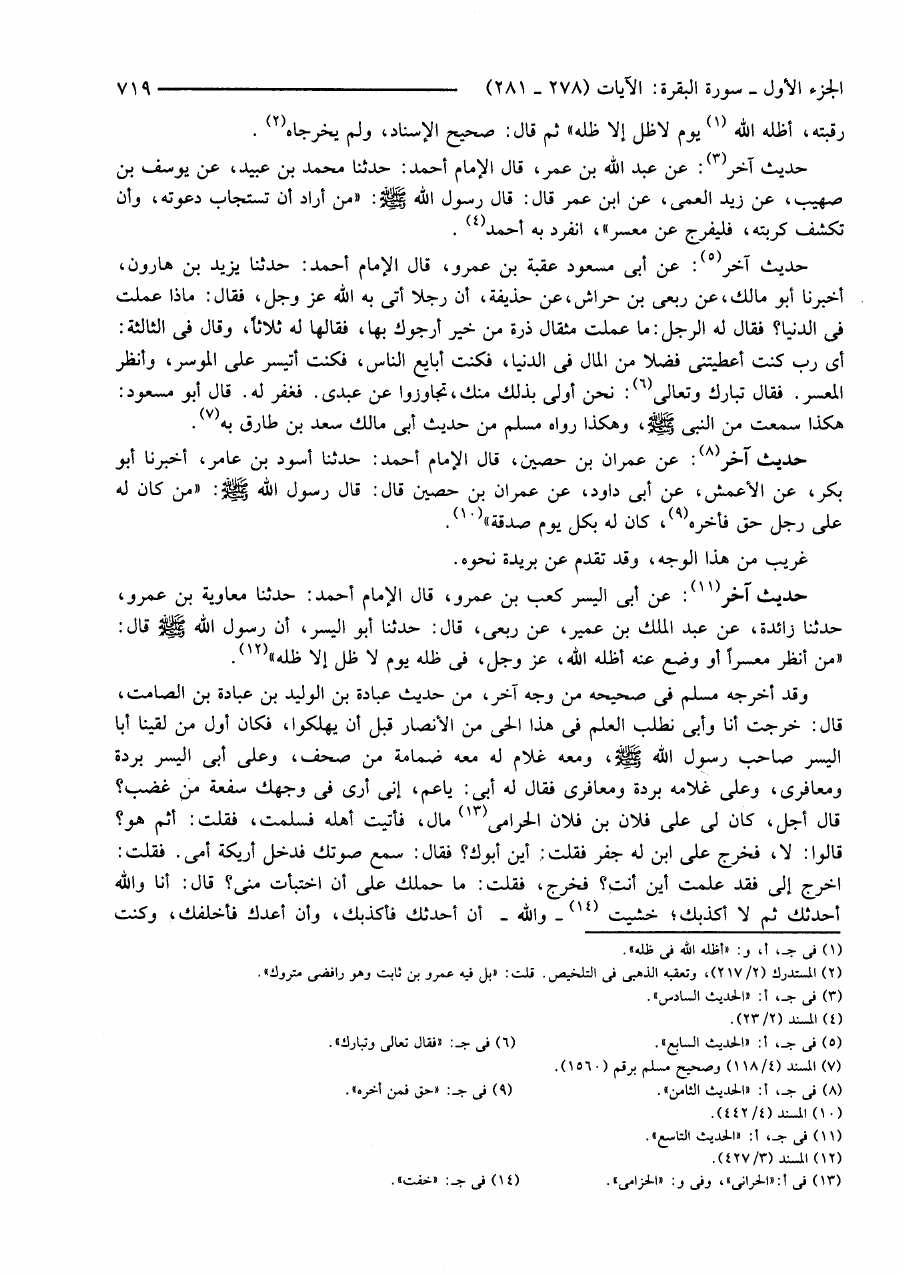 الجزء الأول ـ سورة البقرة: الآيات (٢٧٨ ـ ٢٨١) ٧١٩
رقبته، أظله الله (١) يوم لاظل إلا ظله» ثم قال: صحيح الإسناد، ولم يخرجاه(٢) .
حديث آخر(٣): عن عبد الله بن عمر، قال الإمام أحمد: حدثنا محمد بن عبيد، عن يوسف بن
صهيب، عن زيد العمى، عن ابن عمر قال: قال رسول الله ﷺ: «من أراد أن تستجاب دعوته، وأن
تكشف كربته، فليفرج عن معسر»، انفرد به أحمد(٤) .
حديث آخر(٥): عن أبى مسعود عقبة بن عمرو، قال الإمام أحمد: حدثنا يزيد بن هارون،
أخبرنا أبو مالك،عن ربعى بن حراش،عن حذيفة، أن رجلا أتى به الله عز وجل، فقال: ماذا عملت
فى الدنيا؟ فقال له الرجل:ما عملت مثقال ذرة من خير أرجوك بها، فقالها له ثلاثاً، وقال فى الثالثة:
أى رب كنت أعطيتنى فضلا من المال فى الدنيا، فكنت أبايع الناس، فكنت أتيسر على الموسر، وأنظر
المعسر. فقال تبارك وتعالى(٦): نحن أولى بذلك منك،تجاوزوا عن عبدى. فغفر له. قال أبو مسعود:
هكذا سمعت من النبى ﷺ، وهكذا رواه مسلم من حديث أبى مالك سعد بن طارق به(٧).
حديث آخر(٨): عن عمران بن حصين، قال الإمام أحمد: حدثنا أسود بن عامر، أخبرنا أبو
بكر، عن الأعمش، عن أبى داود، عن عمران بن حصين قال: قال رسول الله ﷺ: «من كان له
على رجل حق فأخره(٩)، كان له بكل يوم صدقة»(١٠).
غريب من هذا الوجه، وقد تقدم عن بريدة نحوه.
حديث آخر(١١): عن أبى اليسر كعب بن عمرو، قال الإمام أحمد: حدثنا معاوية بن عمرو،
حدثنا زائدة، عن عبد الملك بن عمير، عن ربعى، قال: حدثنا أبو اليسر، أن رسول الله ﷺ قال:
«من أنظر معسراً أو وضع عنه أظله الله، عز وجل، فى ظله يوم لا ظل إلا ظله»(١٢).
وقد أخرجه مسلم فى صحيحه من وجه آخر، من حديث عبادة بن الوليد بن عبادة بن الصامت،
قال: خرجت أنا وأبى نطلب العلم فى هذا الحى من الأنصار قبل أن يهلكوا، فكان أول من لقينا أبا
اليسر صاحب رسول الله ﷺ، ومعه غلام له معه ضمامة من صحف، وعلى أبى اليسر بردة
ومعافرى، وعلى غلامه بردة ومعافرى فقال له أبى: ياعم، إنى أرى فى وجهك سفعة من غضب؟
قال أجل، كان لى على فلان بن فلان الحرامى(١٣) مال، فأتيت أهله فسلمت، فقلت: أثم هو؟
قالوا: لا، فخرج على ابن له جفر فقلت: أين أبوك؟ فقال: سمع صوتك فدخل أريكة أمى. فقلت:
اخرج إلى فقد علمت أين أنت؟ فخرج، فقلت: ما حملك على أن اختبأت منى؟ قال: أنا والله
أحدثك ثم لا أكذبك؛ خشيت (١٤)ـ والله ـ أن أحدثك فأكذبك، وأن أعدك فأخلفك، وكنت
(١) فى جـ، أ، و: «أظله الله فى ظله».
(٢) المستدرك (٢/ ٢١٧)، وتعقبه الذهبى فى التلخيص. قلت: «بل فيه عمرو بن ثابت وهو رافضى متروك».
(٣) فى جـ، أ: «الحديث السادس».
(٤) المسند (٢/ ٢٣).
(٥) فى جـ، أ: «الحديث السابع». (٦) فى جـ: «فقال تعالى وتبارك».
(٧) المسند (٤/ ١١٨) وصحيح مسلم برقم (١٥٦٠).
(٨) فى جـ، أ: «الحديث الثامن». (٩) فى جـ: «حق فمن أخره».
(١٠) المسند (٤/ ٤٤٢).
(١١) فى جـ، أ: «الحديث التاسع».
(١٢) المسند (٣/ ٤٢٧).
(١٣) فى أ:«الحرانى»، وفى و: «الحزامى». (١٤) فى جـ: «خفت».